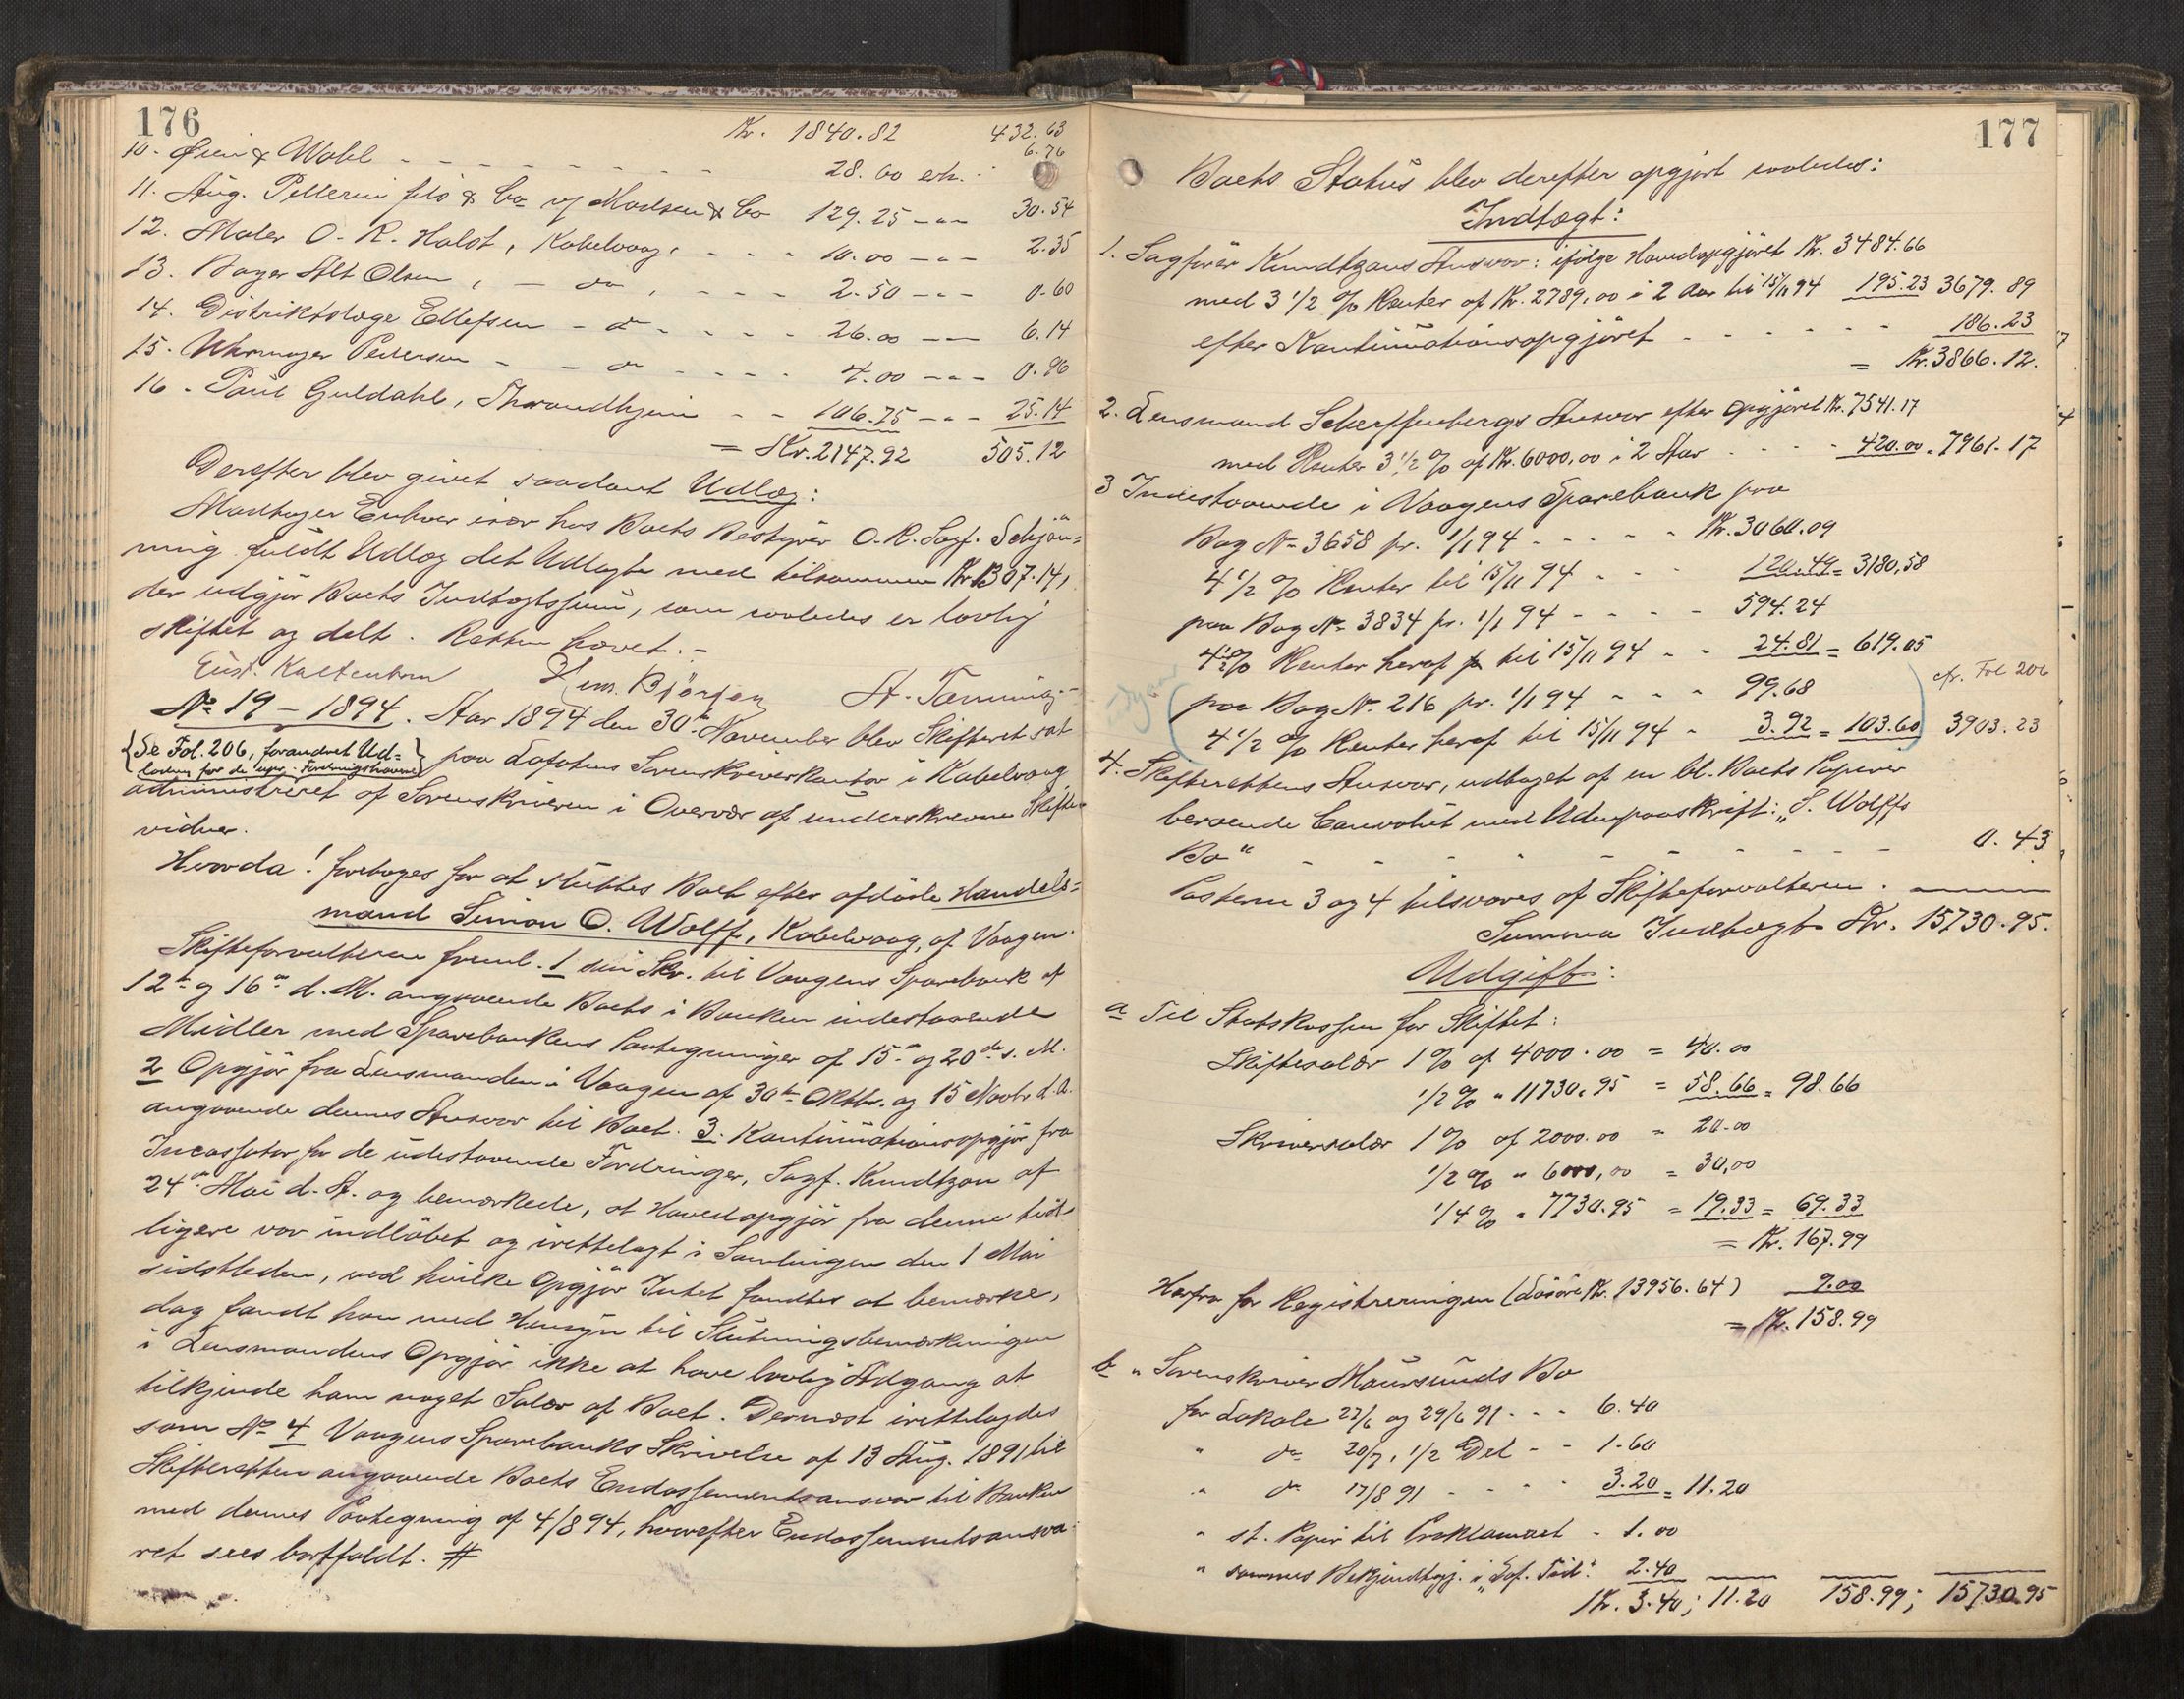 176
Kr. 1840.82 432.63
10. Øien & Wahl - - - - - - - - 28.00 erh. - 6.76
11. Aug. Pellerin fils & Co v/ Madsen & Co 129.25 -"- 30.54
12. Maler O. R. Holst, Kabelvaag, - - - 10.00 -"- 2.35
13. Bager Alt Olsen, - do, - - - 2.50 -"- 0.60
14. Distriktslæge Ellefsen - do - - - - 26.00 -"- 6.14
15. Uhrmager Pedersen - - do - - - - 4.00 -"- 0.96
16. Paul Guldahl, Throndhjem - - 106.75 -"- 25.14
= Kr. 2147.92 505.12
Derefter blev givet saadant Udlæg:
Modtager Enhver især hos Boets Bestyrer O.R. Sagf. Schjøn=
ning fuldt Udlæg det Udlagte med tilsammen Kr 1307.14,
der udgjør Boets Indtægtssum, som saaledes er lovlig
skiftet og delt. Retten hævet. -
Eust. Kaltenborn Jens. Bjørgan A. Tønning. -
No 19 - 1894. Aar 1894 den 30te November blev Skifteret sat
{Se Fol. 206, forandret Ud=
lodn. for de upr. Fordringshavere} paa Lofotens Sorenskriverkontor i Kabelvaag
administreret af Sorenskriveren i Overvær af underskrevne Skifte
vidner.
Hvorda! foretoges for at sluttes Boet efter afdøde Handels=
mand Simon O. Wolff, Kabelvaag, af Vaagen.
Skifteforvalteren freml. 1 sin Skr. til Vaagens Sparebank af
12te og 16de d. M. angaaende Boets i Banken indestaaende
Midler med Sparebankens Paategninger af 15de og 20de s. M.
2 Opgjør fra Lensmanden i Vaagen af 30te Oktbr. og 15 Novbr d. A.
angaaende dennes Ansvar til Boet. 3. Kontinuationsopgjør fra
Incassator for de udestaaende Fordringer, Sagf. Kundtzon af
24de Mai d. A. og bemærkede, at Hovedopgjør fra denne tid-
ligere var indløbet og irettelagt i Samlingen den 1 Mai
sidstleden, ved hvilke Opgjør Intet fandtes at bemærke,
dog fandt han med Hensyn til Slutningsbemærkningen
i Lensmandens Opgjør ikke at have lovlig Adgang at
tilkjende ham noget Salær af Boet. Dernæst irettelagdes
som No 4 Vaagens Sparebanks Skrivelse af 13 Aug. 1891 til
Skifteretten angaaende Boets Endossementsansvar til Banken
med dennes Paategning af 4/8 94, hvorefter Endossementsansva-
ret sees bortfaldt. #
177
Boets Status blev derefter opgjort saaledes:
Indtægt:
1. Sagfører Kundtzons Ansvar: ifølge Hovedopgjøret Kr. 3484.66
med 3 1/2 % Renter af Kr. 2789,00 i 2 Aar til 15/11 94 195.23 3679.89
efter Kontinuationsopgjøret - - - - - - 186.23
= Kr. 3866.12.
2. Lensmand Scherffenbergs Ansvar efter Opgjøret Kr. 7541.17
med Renter 3 1/2 % af Kr. 6000,00 i 2 Aar - - - 420.00 = 7961.17
3 Indestaaende i Vaagens Sparebank paa
Bog No 3658 pr. 1/1 94 - - - - - Kr. 3060.09
4 1/2 % Renter til 15/11 94 - - - 120.49 = 3180,58
paa Bog No 3834 pr. 1/1 94 - - - - 594.24
4 1/2 % Renter heraf til 15/11 94 - - 24.81 = 619.05
cfr. Fol 206
paa Bog No. 216 pr. 1/1 94 - - - 99.68
4 1/2 % Renter heraf til 15/11 94 - 3.92 = 103.60 3903.23
4. Skifterettens Ansvar, udtaget af en bl. Boets Papirer
beroende Convolut med Udenpaaskrift: "S. Wolffs
Bo" - - - - - - - - - 0.43
Posterne 3 og 4 tilsvares af Skifteforvalteren.
Summa Indtægt Kr. 15730.95.
Udgift:
a Til Statskassen for Skiftet:
Skiftesalær 1 % af 4000.00 = 40.00
1/2 % " 11730,95 = 58.66 = 98.66
Skriversalær 1 % af 2000.00 = 20.00
1/2 % " 6000,00 = 30,00
1/4 % " 7730.95 = 19.33 = 69.33
= Kr. 167.99
Herfra for Registreringen (Løsøre Kr. 13956.64) 9.00
= Kr. 158.99
b " Sorenskriver Maursunds Bo
for Lokale 22/6 og 29/6 91 - - - 6.40
" do 20/7, 1/2 Del - - 1.60
" do 17/8 91 - - - - 3.20 = 11.20
" st. Papir til Proklamaet - 1.00
" sammes Bekjendtgj. i "Lof. Tid." 2.40
Kr. 3.40; 11.20 158.99; 15730.95